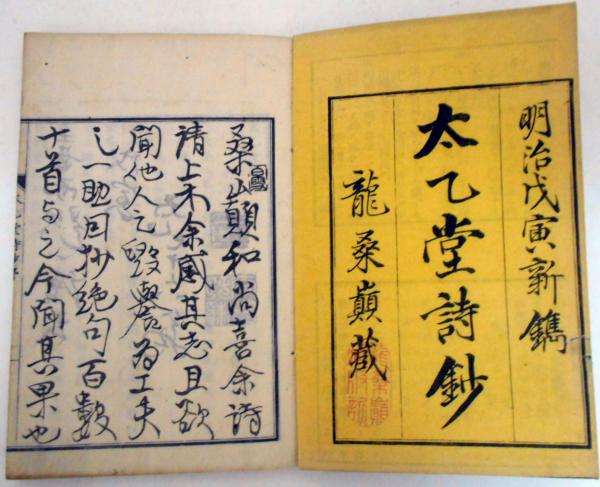 明治戊寅新鐫
太乙堂詩鈔
龍桑巓藏
桑巓和尚喜余詩
請上木余感其志且欲
聞他人之毀譽為工夫
之一助因抄絶句百數
十首与之今聞其果也